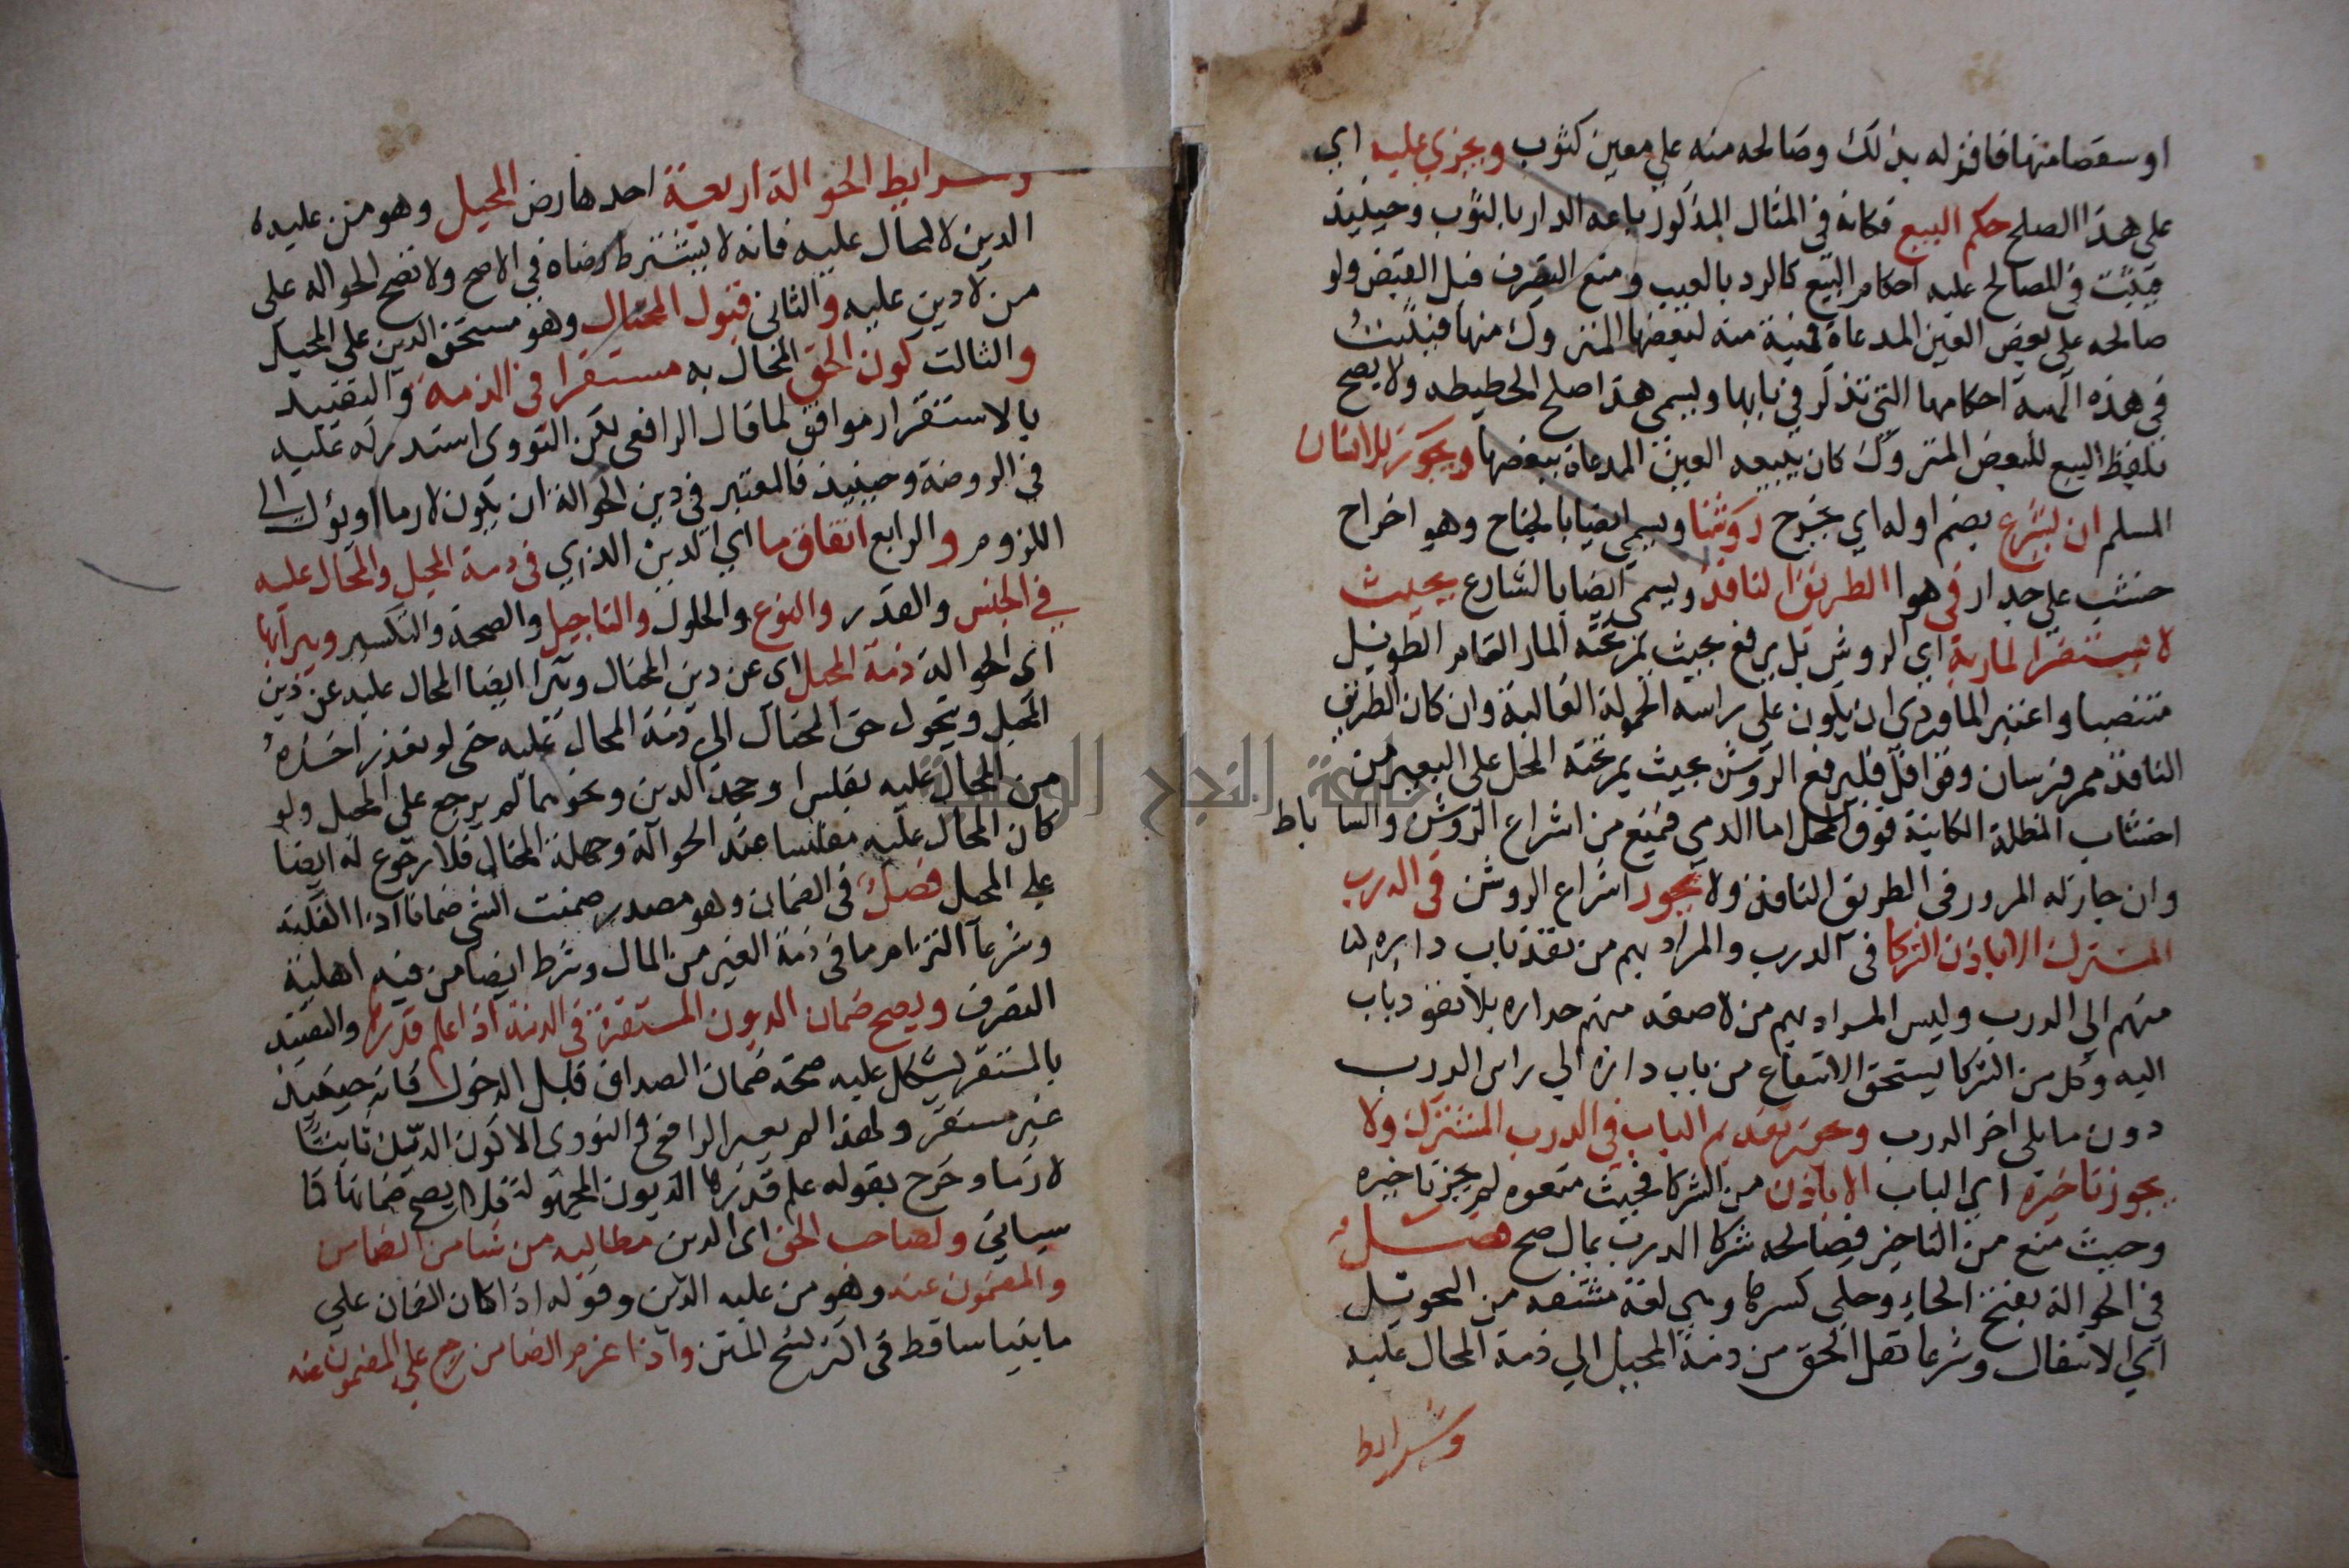 او سقصا منها فاقر له بذلك وصالحه منه علي معين كثوب ويجري عليه اي
علي هذا الصلح حكم البيع فكانه في المثال المذكور باعه الدار بالثوب وحينيذ
فيثبت في المصالح عليه احكام البيع كالرد بالعيب ومنع التصرف قبل القبض ولو
صالحه علي بعض العين المدعاة فهبة منه لبعضها المتروك منها فيثبت
في هذه الهبة احكامها التي تذكر في بابها ويسمي هذا صلح الحطيطه ولا يصح
بلفظ البيع للبعض المتروك كان يبيعه العين المدعاة ببعضها ويجوز للانسان
المسلم ان يشرع بضم اوله اي يخرج روشنا ويسمي ايضا بالجناح وهو اخراج
خشب علي جدار في هوا الطريق النافذ ويسمي ايضا بالشارع بحيث
لا يتضرر المار به اي الروشن بل يرفع بحيث يمر تحته المار التام الطويل
منتصبا واعتبر الماوردي ان يكون علي راسه الحمولة الغالبة وان كان الطريق
النافذ ممر فرسان وقوافل فليرفع الروشن بحيث يمر تحته المحمل علي البعير من
اخشاب المظلة الكاينة فوق المحمل اما الذمي فيمنع من اشراع الروشن والساباط
وان جاز له المرور في الطريق النافذ ولا يجوز اشراع الروشن في الدرب
المشترك الا باذن الشركا في الدرب والمراد بهم من نفذ باب داره
منهم الي الدرب وليس المراد بهم من لاصقه منهم جداره بلا نفوذ باب
اليه وكل من الشركا يستحق الانتفاع من باب داره الي راس الدرب
دون ما يلي اخر الدرب ويجوز تقديم الباب في الدرب المشترك ولا
يجوز تاخيره اي الباب الا باذن من الشركا فحيث منعوه لم يجز تاخيره
وحيث منع من التاخير فصالحه شركا الدرب بمال صح فصل
في الحوالة بفتح الحاء وحكي كسرها وهي لغة مشتقه من التحويل
اي الانتقال وشرعا نقل الحق من ذمة المحيل الي ذمة المحال عليه
وشرايط
وشرايط الحوالة اربعة احدها رضي المحيل وهو من عليه
الدين لا المحال عليه فانه لا يشترط رضاه في الاصح ولا تصح الحواله علي
من لا دين عليه والثاني قبول المحتال وهو مستحق الدين علي المحيل
والثالث كون الحق المحال به مستقرا في الذمة والتقييد
بالاستقرار موافق لما قال الرافعي لكن النووي استدركه عليه
في الروضة وحينيذ فالمعتبر في دين الحوالة ان يكون لازما او يؤل الي
اللزوم والرابع اتفاق ما اي الدين الذي في ذمة المحيل والمحال عليه
في الجنس والقدر والنوع والحلول والتاجيل والصحة والتكسير ويبرا بها
اي الحوالة ذمة المحيل اي عن دين المحتال ويبرا ايضا المحال عليه عن دين
المحيل ويتحول حق المحتال الي ذمة المحال عليه حتي لو تعذر اخذه
من المحال عليه بفلس او جحد الدين ونحوهما لم يرجع علي المحيل ولو
كان المحال عليه مفلسا عند الحوالة وجهله المحتال فلا رجوع له ايضا
علي المحيل فصل في الضمان وهو مصدر ضمنت الشي ضمانا اذا
وشرعا التزام ما في ذمة الغير من المال وشرط الضامن فيه اهلية
التصرف ويصح ضمان الديون المستقرة في الذمة اذا علم قدرها والتقييد
بالمستقر يشكل عليه صحة ضمان الصداق قبل الدخول فانه حينيذ
غير مستقر ولهذا لم يعتبر الرافعي والنووي الا كون الدين ثابتا
لازما وخرج بقوله علم قدرها الديون المجهولة فلا يصح ضمانها كما
سياتي ولصاحب الحق اي الدين مطالبة من شا من الضامن
والمضمون عنه وهو من عليه الدين وقوله اذا كان الضمان علي
ما بينا ساقط في اكثر نسخ المتن واذا غرم الضامن رجع علي المضمون عنه
جامعة النجاح الوطنية